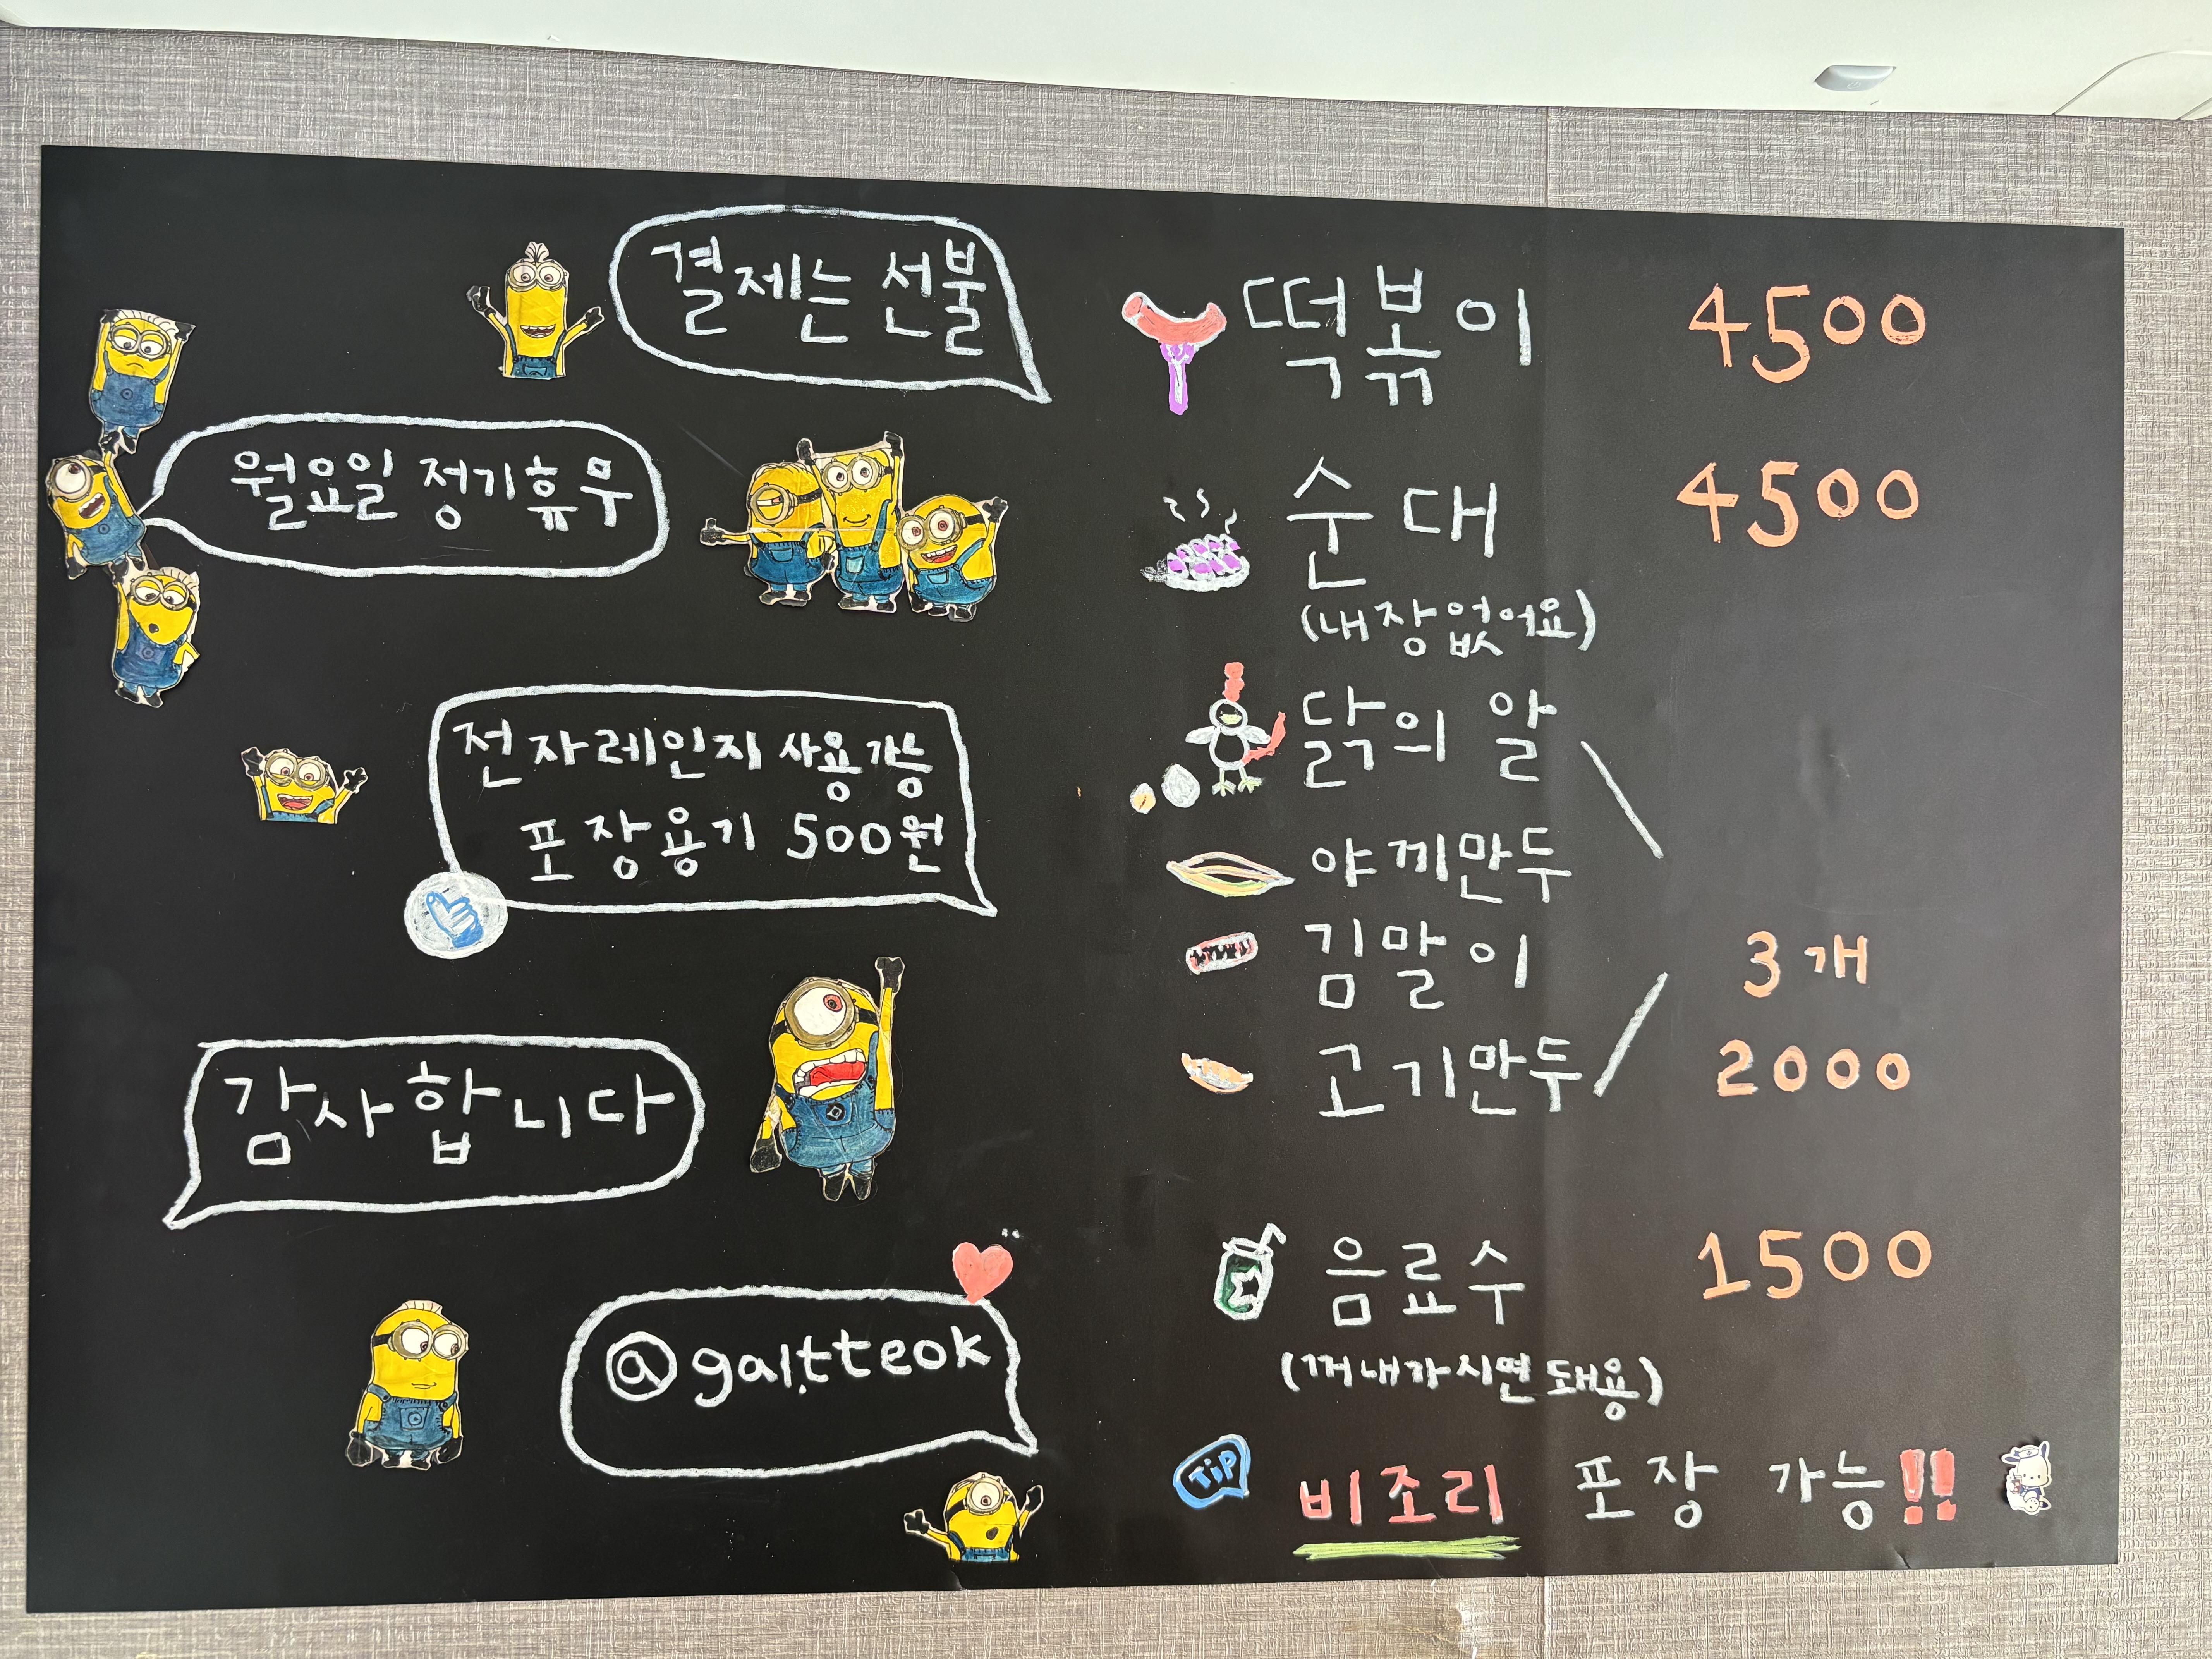 결제는 선불
월요일 정기휴무
전자레인지 사용가능
포장용기 500원
감사합니다
@gal.tteok
떡볶이 4500
순대 4500
(내장없어요)
닭의 알
야끼만두
김말이
고기만두
3개
2000
음료수 1500
(꺼내가시면 돼용)
TiP
비조리 포장 가능!!